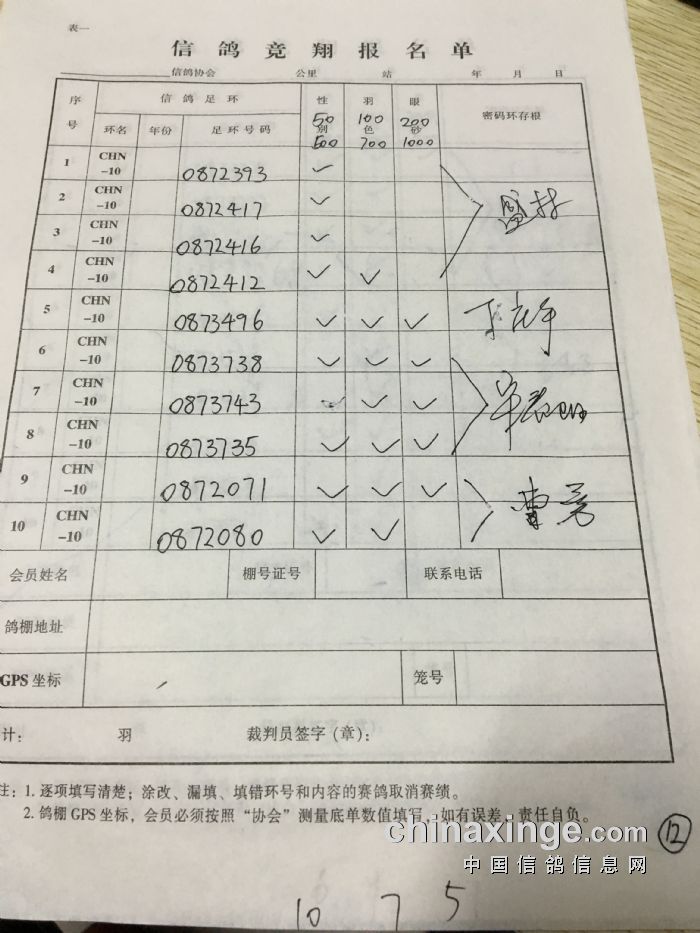 表一
信鸽竞翔报名单
信鸽协会 公里 站 年 月 日
序号 信鸽足环 性别 羽色 眼砂 密码环存根
50 100 200
环名 年份 足环号码
500 700 1000
1 CHN-10 0872393 ✓
2 CHN-10 0872417 ✓
3 CHN-10 0872416 ✓
4 CHN-10 0872412 ✓ ✓
5 CHN-10 0873496 ✓ ✓ ✓
6 CHN-10 0873738 ✓ ✓ ✓
7 CHN-10 0873743 ✓ ✓
8 CHN-10 0873735 ✓ ✓ ✓
9 CHN-10 0872071 ✓ ✓ ✓
10 CHN-10 0872080 ✓ ✓
会员姓名 棚号证号 联系电话
鸽棚地址
GPS坐标 笼号
计： 羽 裁判员签字（章）：
注：1. 逐项填写清楚；涂改、漏填、填错环号和内容的赛鸽取消赛绩。
2. 鸽棚 GPS 坐标，会员必须按照“协会”测量底单数值填写，如有误差，责任自负。
chinaxinge.com
中国信鸽信息网
12
10 7 5